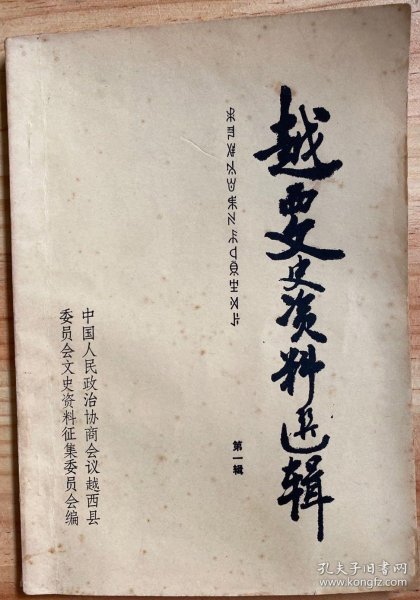 越西文史资料选辑
第一辑
中国人民政治协商会议越西县
委员会文史资料征集委员会编
孔夫子旧书网
www.kongfz.com